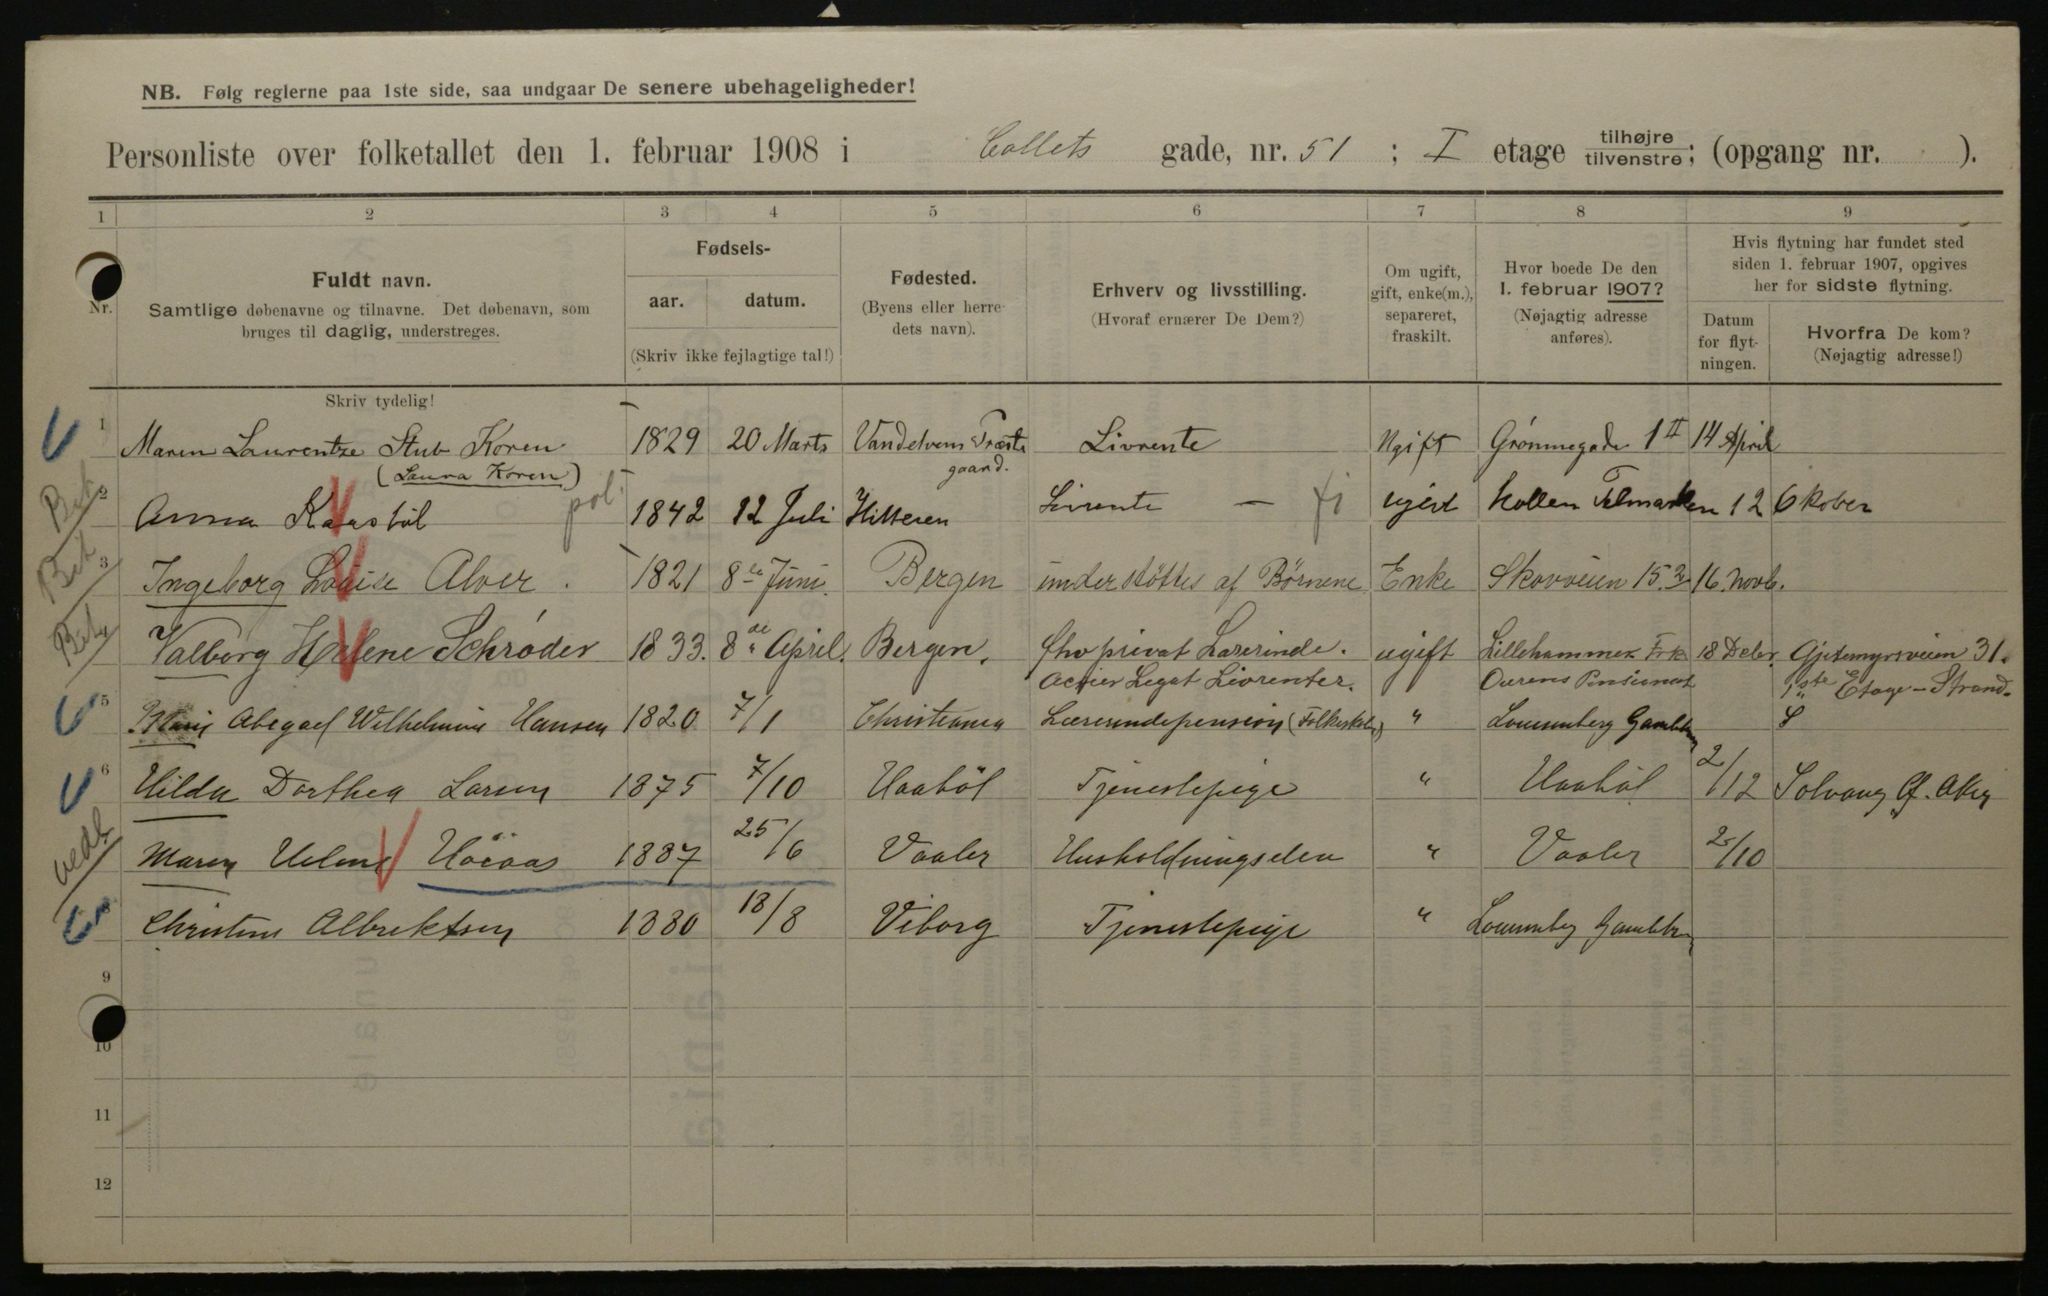 NB. Følg reglerne paa 1ste side, saa undgaar De senere ubehageligheder!
Personliste over folketallet den 1. februar 1908 i Collets gade, nr. 51 ; I etage tilhøjre tilvenstre; (opgang nr. ).
1 2 3 4 5 6 7 8 9
Nr.
Fuldt navn.
Samtlige døbenavne og tilnavne. Det døbenavn, som
bruges til daglig, understreges.
Skriv tydelig!
Fødsels-
aar. datum.
(Skriv ikke fejlagtige tal!)
Fødested.
(Byens eller herre-
dets navn).
Erhverv og livsstilling.
(Hvoraf ernærer De Dem?)
Om ugift,
gift, enke(m.),
separeret,
fraskilt.
Hvor boede De den
1. februar 1907?
(Nøjagtig adresse
anføres).
Hvis flytning har fundet sted
siden 1. februar 1907, opgives
her for sidste flytning.
Datum
for flyt-
ningen.
Hvorfra De kom?
(Nøjagtig adresse!)
1 Maren Laurentze Stub Koren 1829 20 Marts Vandelvens Præste Livrente Ugift Grønnegade 1 II 14 April
(Laura Koren) gaard.
2 Anna Kaasbøl pol. 1842 12 Juli Hitteren Livrente — fi ugivt Kollen Telmarken 12 Okober
3 Ingeborg Louise Alver. 1821 8de Juni. Bergen understøttes af Børnene Enke Skovveien 15.3 16. Novb.
Valborg Helene Schrøder 1833. 8de April. Bergen. fhv privat Lærerinde. ugift Lillehammer Frk 18 Debr. Gjetemyrsveien 31.
Legat Livrenter. Ourens Pensionat 1ste Etage – Strand-
5 Abegael Wilhelmine Hansen 1820 7/1 Christiania Lærerindepension (Folkeskolen) " Louisenberg Gamleby
6 Hilda Dorthea Larsen 1875 7/10 Haabøl Tjenestepige " Haabøl 2/12 Solvang Aker
vedb. Maren Helene Höiaas 1887 25/6 Vaaler Husholdningselev " Vaaler 2/10
Christine Albrektsen 1880 18/8 Viborg Tjenestepige " Louisenberg Gamleby
9
10
11
12